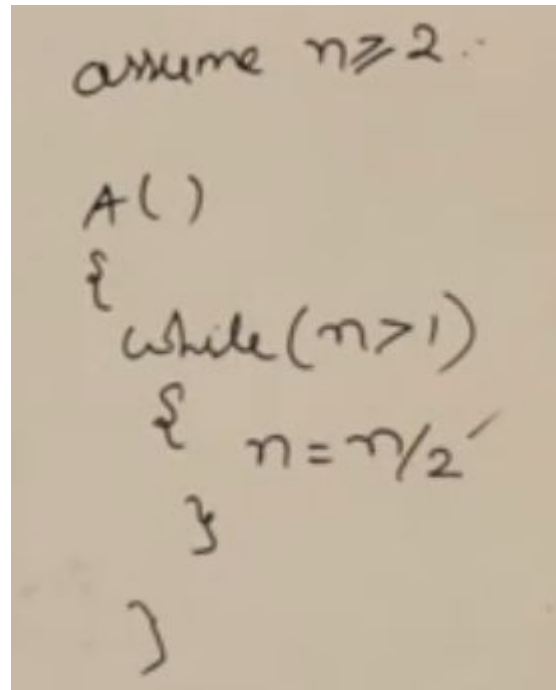 assume n ≥ 2.
A()
{
while(n>1)
{ n=n/2
}
}